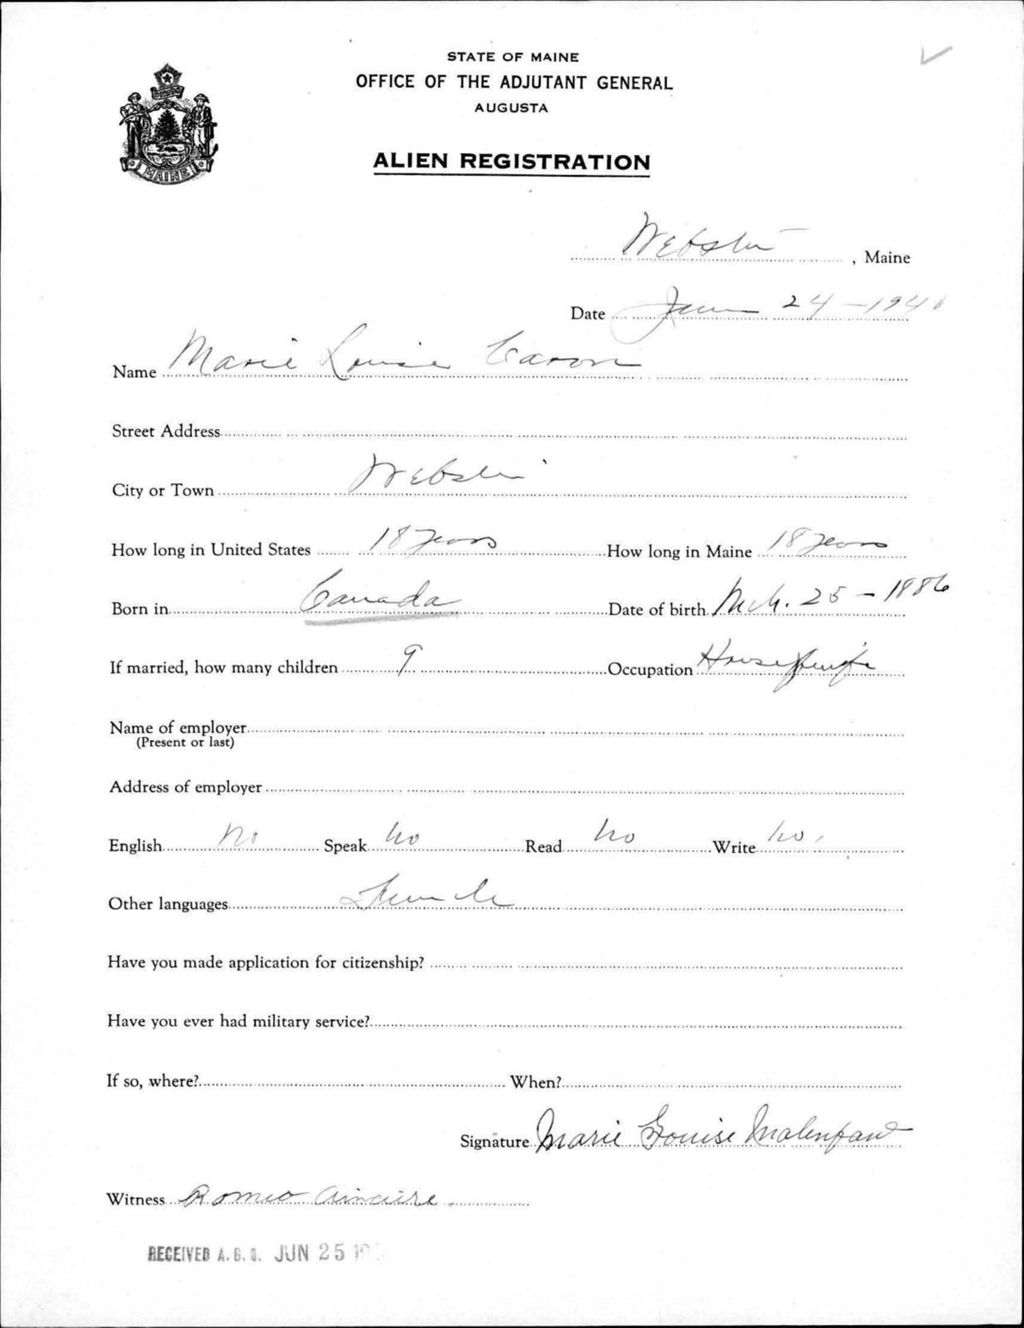 STATE OF MAINE
OFFICE OF THE ADJUTANT GENERAL
AUGUSTA
ALIEN REGISTRATION
MAINE
Webster, Maine
Date June 24-1940
Name Marie Louise Caron
Street Address
City or Town Webster
How long in United States 18 years How long in Maine 18 years
Born in Canada Date of birth Mch. 25-1886
If married, how many children 9 Occupation Housewife
Name of employer
(Present or last)
Address of employer
English No Speak No Read No Write No.
Other languages French
Have you made application for citizenship?
Have you ever had military service?
If so, where? When?
Signature Marie Louise Malenfant
Witness Romeo
RECEIVED A.G.O. JUN 25